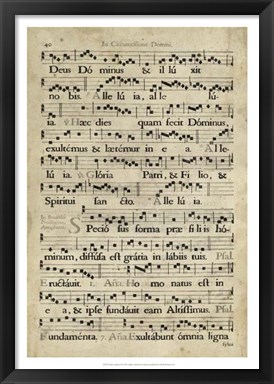 40 In Circumcisione Domini.
Deus Dó minus & il lú xit
no bis. Al le lú ia, al le lú
ia. Hæc dies quam fecit Dóminus,
exultémus & lætémur in e a. Al le
lú ia. Glória Patri, & Fi lio, &
Spiritui san cto. Al le lú ia.
Spéció sus forma præ fí li is hó-
minum, diffúsa est grátia in lábiis tuis. Psal.
Eructávit. Ho mo natus est in
e a, & ipse fundávit eam Altíssimus. Psal.
Fundaménta. Exaltábunt ómnia ligna